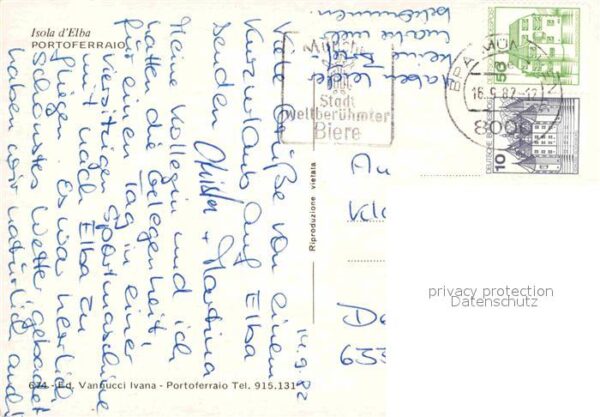 Isola d'Elba
PORTOFERRAIO
14.9.82
Viele Grüße von einem
Kurzurlaub auf Elba
senden
+ Martina
Meine Kollegin und ich
hatten die Gelegenheit,
für einen Tag in einer
viersitzigen Sportmaschine
mit nach Elba zu
fliegen. Es war herrlich
schönstes Wetter, gebadet
haben wir natürlich auch!
haben leider
keine
bekommen
München
Stadt
weltberühmter
Biere
MÜNCHEN
16.9.82-12
8000
50
10
DEUTSCHE BUNDESPOST
Riproduzione vietata
privacy protection
Datenschutz
674 - Ed. Vannucci Ivana - Portoferraio Tel. 915.131